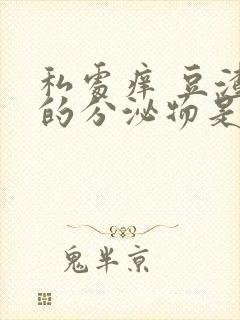 私处痒豆渣
的分泌物是
鬼半京